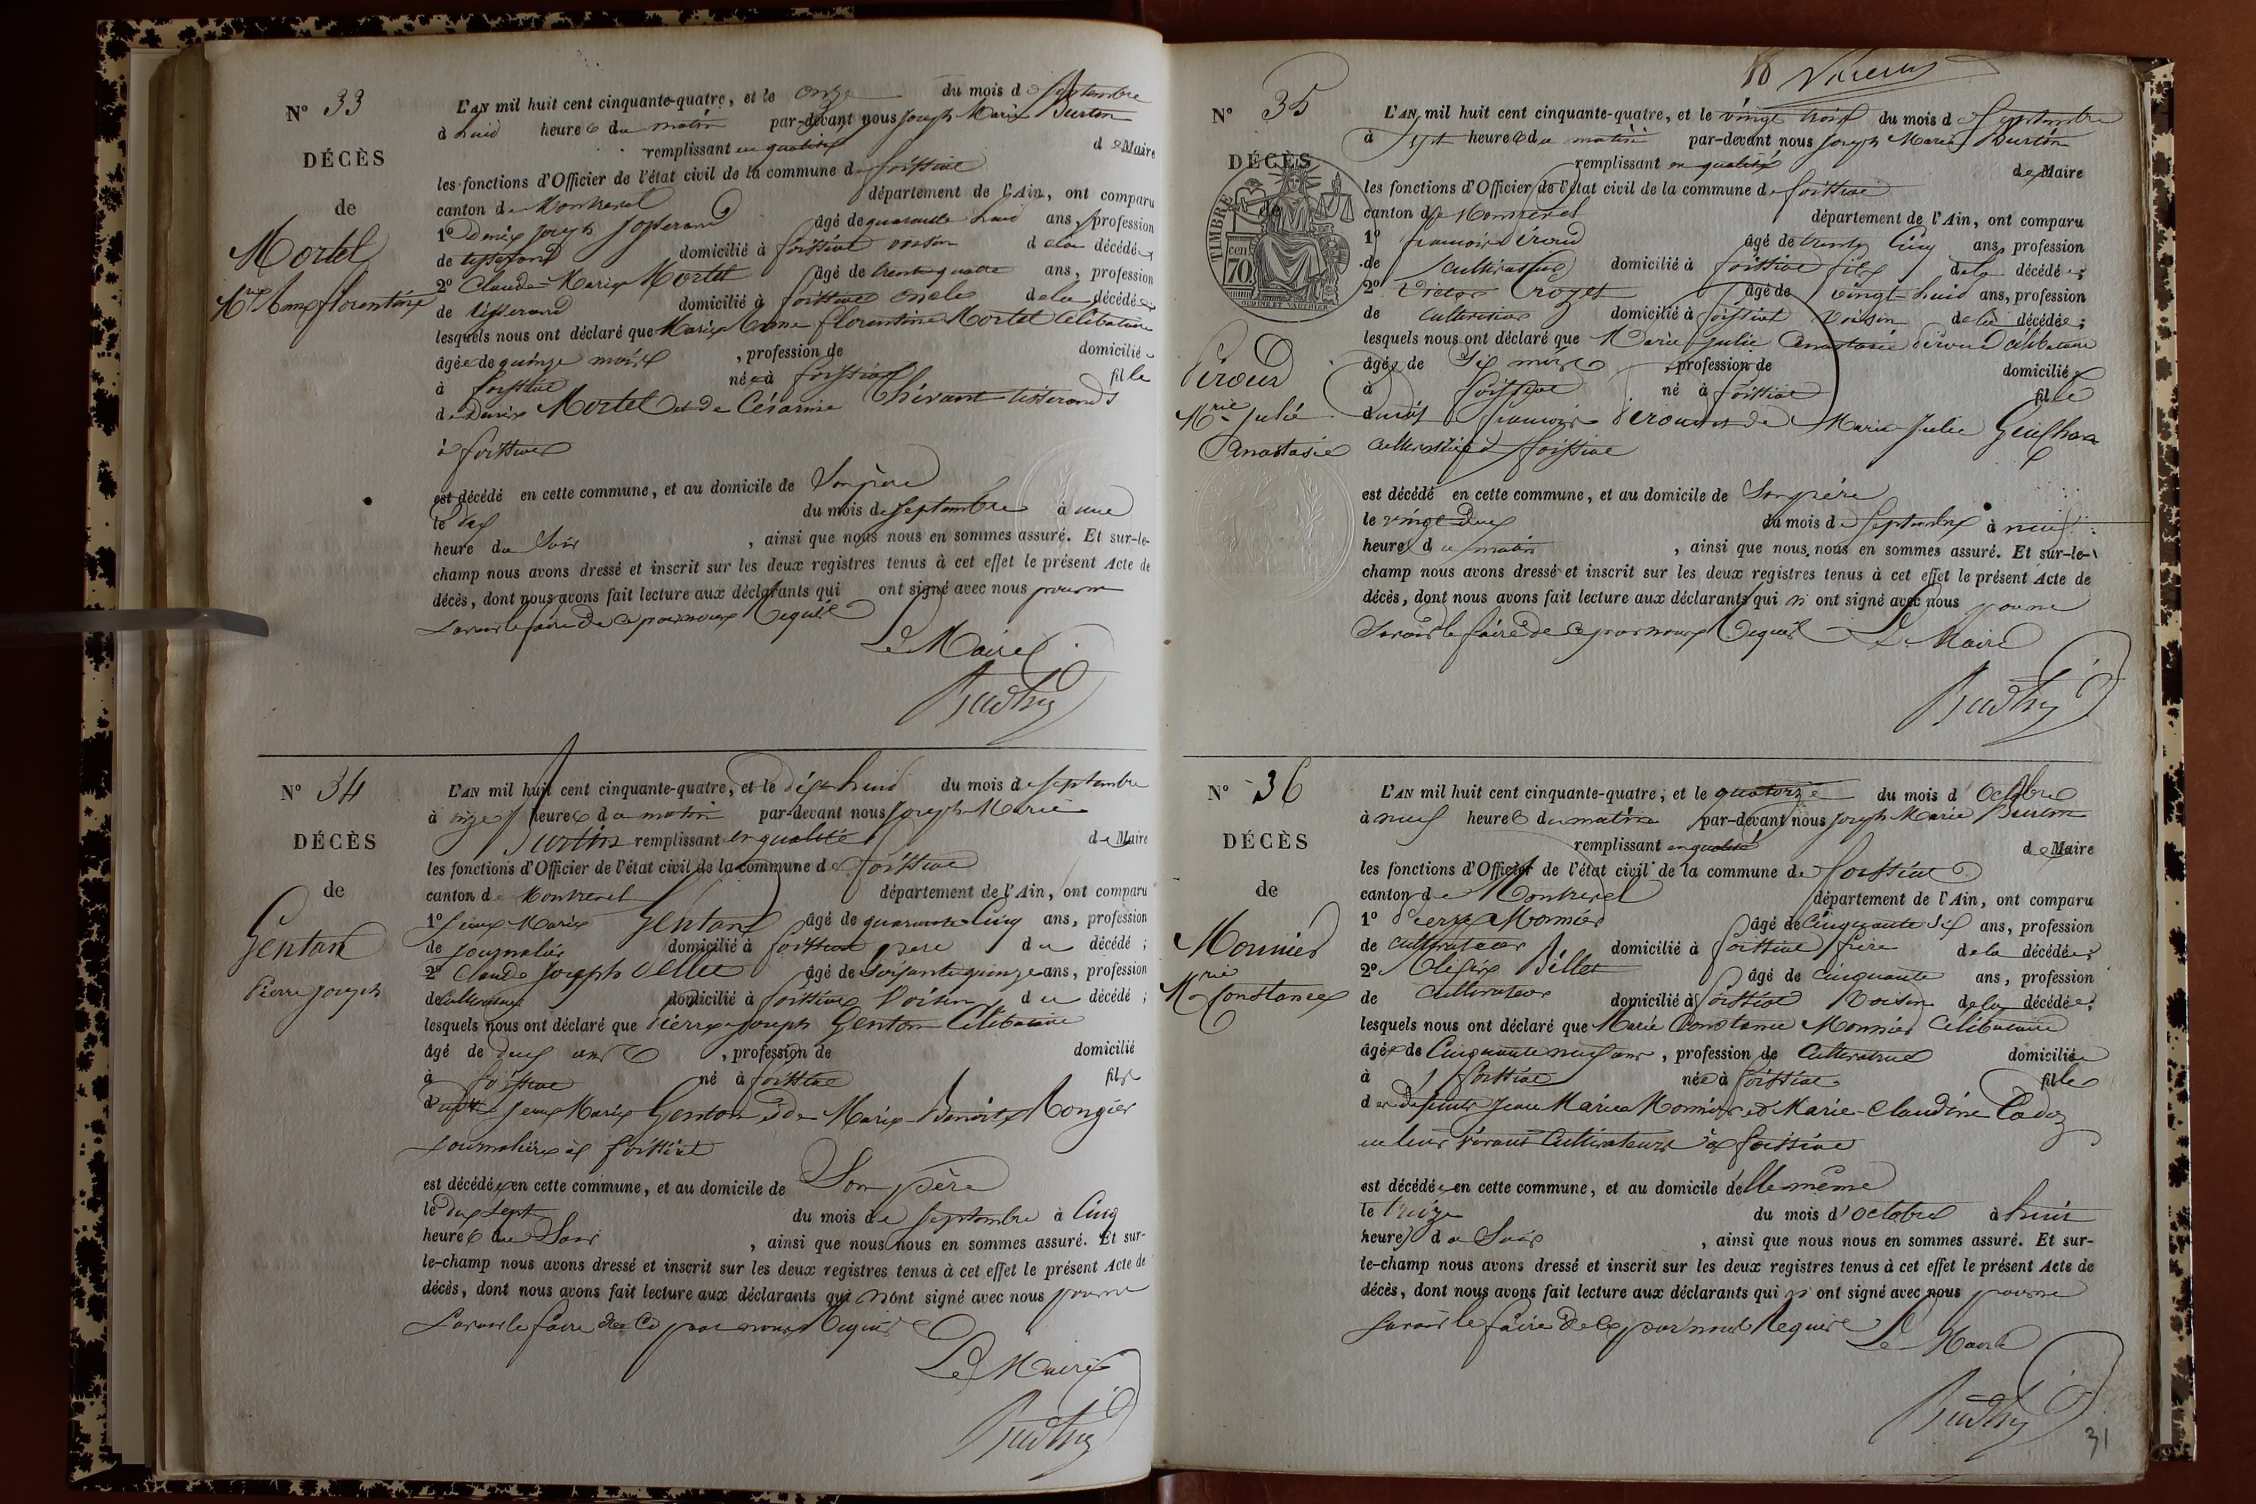 N° 33
DÉCÈS
de
Mortel
Mie Anne florentine
L'AN mil huit cent cinquante-quatre, et le onze du mois de Septembre
à huit heures du matin par-devant nous Joseph Marie Burtin
remplissant en qualité de Maire
les fonctions d'Officier de l'état civil de la commune de foissiat
canton de Montrevel département de l'Ain, ont comparu
1° Denis Joseph Josserand âgé de quarante huit ans, profession
de tisserand domicilié à foissiat voisin de la décédée
2° Claude-Marie Mortel âgé de trente quatre ans, profession
de tisserand domicilié à foissiat oncle de la décédée
lesquels nous ont déclaré que Marie Anne florentine Mortel Célibataire
âgée de quinze mois , profession de domicilié
à foissiat née à foissiat fille
de Denis Mortel et de Césarine Thévant tisserands
à foissiat
est décédé en cette commune, et au domicile de Son père
le dix du mois de Septembre à une
heure du Soir , ainsi que nous nous en sommes assuré. Et sur-le-
champ nous avons dressé et inscrit sur les deux registres tenus à cet effet le présent Acte de
décès, dont nous avons fait lecture aux déclarants qui ont signé avec nous pour ne
Savoir le faire de ce par nous Requis
Le Maire
N° 34
DÉCÈS
de
Gentan
Pierre Joseph
L'AN mil huit cent cinquante-quatre, et le dix huit du mois de Septembre
à onze heures du matin par-devant nous Joseph Marie
Burtin remplissant en qualité de Maire
les fonctions d'Officier de l'état civil de la commune de foissiat
canton de Montrevel département de l'Ain, ont comparu
1° Jean Marie Gentan âgé de quarante Cinq ans, profession
de journalier domicilié à foissiat père du décédé ;
2° Claude Joseph âgé de Soixante quinze ans, profession
de Cultivateur domicilié à foissiat Voisin du décédé ;
lesquels nous ont déclaré que Pierre Joseph Gentan Célibataire
âgé de deux ans , profession de domicilié
à foissiat né à foissiat fils
de Jean Marie Gentan et de Marie-Benoite Rongier
journaliers à foissiat
est décédé en cette commune, et au domicile de Son père
le dix Sept du mois de Septembre à Cinq
heures du Soir , ainsi que nous nous en sommes assuré. Et sur-
le-champ nous avons dressé et inscrit sur les deux registres tenus à cet effet le présent Acte de
décès, dont nous avons fait lecture aux déclarants qui n'ont signé avec nous pour ne
Savoir le faire de Ce par nous Requis
Le Maire
N° 35
DÉCÈS
de
TIMBRE
cen
70
Péroud
Mrie Julie
Anastasie
L'AN mil huit cent cinquante-quatre, et le vingt trois du mois de Septembre
à Sept heures du matin par-devant nous Joseph Marie Burtin
remplissant en qualité de Maire
les fonctions d'Officier de l'état civil de la commune de foissiat
canton de Montrevel département de l'Ain, ont comparu
1° françois Péroud âgé de trente Cinq ans, profession
de Cultivateur domicilié à foissiat de la décédée ;
2° Victor Crozet âgé de vingt-huit ans, profession
de Cultivateur domicilié à foissiat Voisin de la décédée ;
lesquels nous ont déclaré que Marie-Julie Anastasie Péroud Célibataire
âgée de Six mois profession de domicilié
à foissiat né à foissiat fille
dudit françois Péroud et de Marie-Julie
Cultivateurs à foissiat
est décédé en cette commune, et au domicile de Son père
le vingt Deux du mois de Septembre à neuf
heures du matin , ainsi que nous nous en sommes assuré. Et sur-le-
champ nous avons dressé et inscrit sur les deux registres tenus à cet effet le présent Acte de
décès, dont nous avons fait lecture aux déclarants qui n'ont signé avec nous pour ne
Savoir le faire de ce par nous Requis Le Maire
N° 36
DÉCÈS
de
Monnier
Mrie Constance
L'AN mil huit cent cinquante-quatre, et le quatorze du mois d'Octobre
à neuf heures du matin par-devant nous Joseph Marie Burtin
remplissant en qualité de Maire
les fonctions d'Officier de l'état civil de la commune de foissiat
canton de Montrevel département de l'Ain, ont comparu
1° Pierre Monnier âgé de Cinquante Six ans, profession
de Cultivateur domicilié à foissiat frère de la décédée ;
2° Billet âgé de Cinquante ans, profession
de Cultivateur domicilié à foissiat Voisin de la décédée ;
lesquels nous ont déclaré que Marie Constance Monnier Célibataire
âgée de Cinquante neuf ans , profession de Cultivatrice domiciliée
à foissiat née à foissiat fille
de défunts Jean Marie Monnier et Marie-Claudine Cadoz
en leur vivant Cultivateurs à foissiat
est décédée en cette commune, et au domicile d'elle même
le treize du mois d'octobre à huit
heures du Soir , ainsi que nous nous en sommes assuré. Et sur-
le-champ nous avons dressé et inscrit sur les deux registres tenus à cet effet le présent Acte de
décès, dont nous avons fait lecture aux déclarants qui n'ont signé avec nous pour ne
Savoir le faire de Ce par nous Requis Le Maire
31